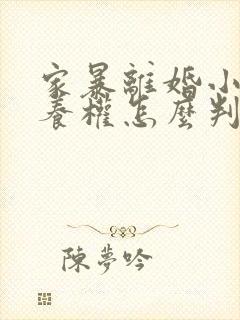 家暴離婚小
養權怎麼判
陳夢吟